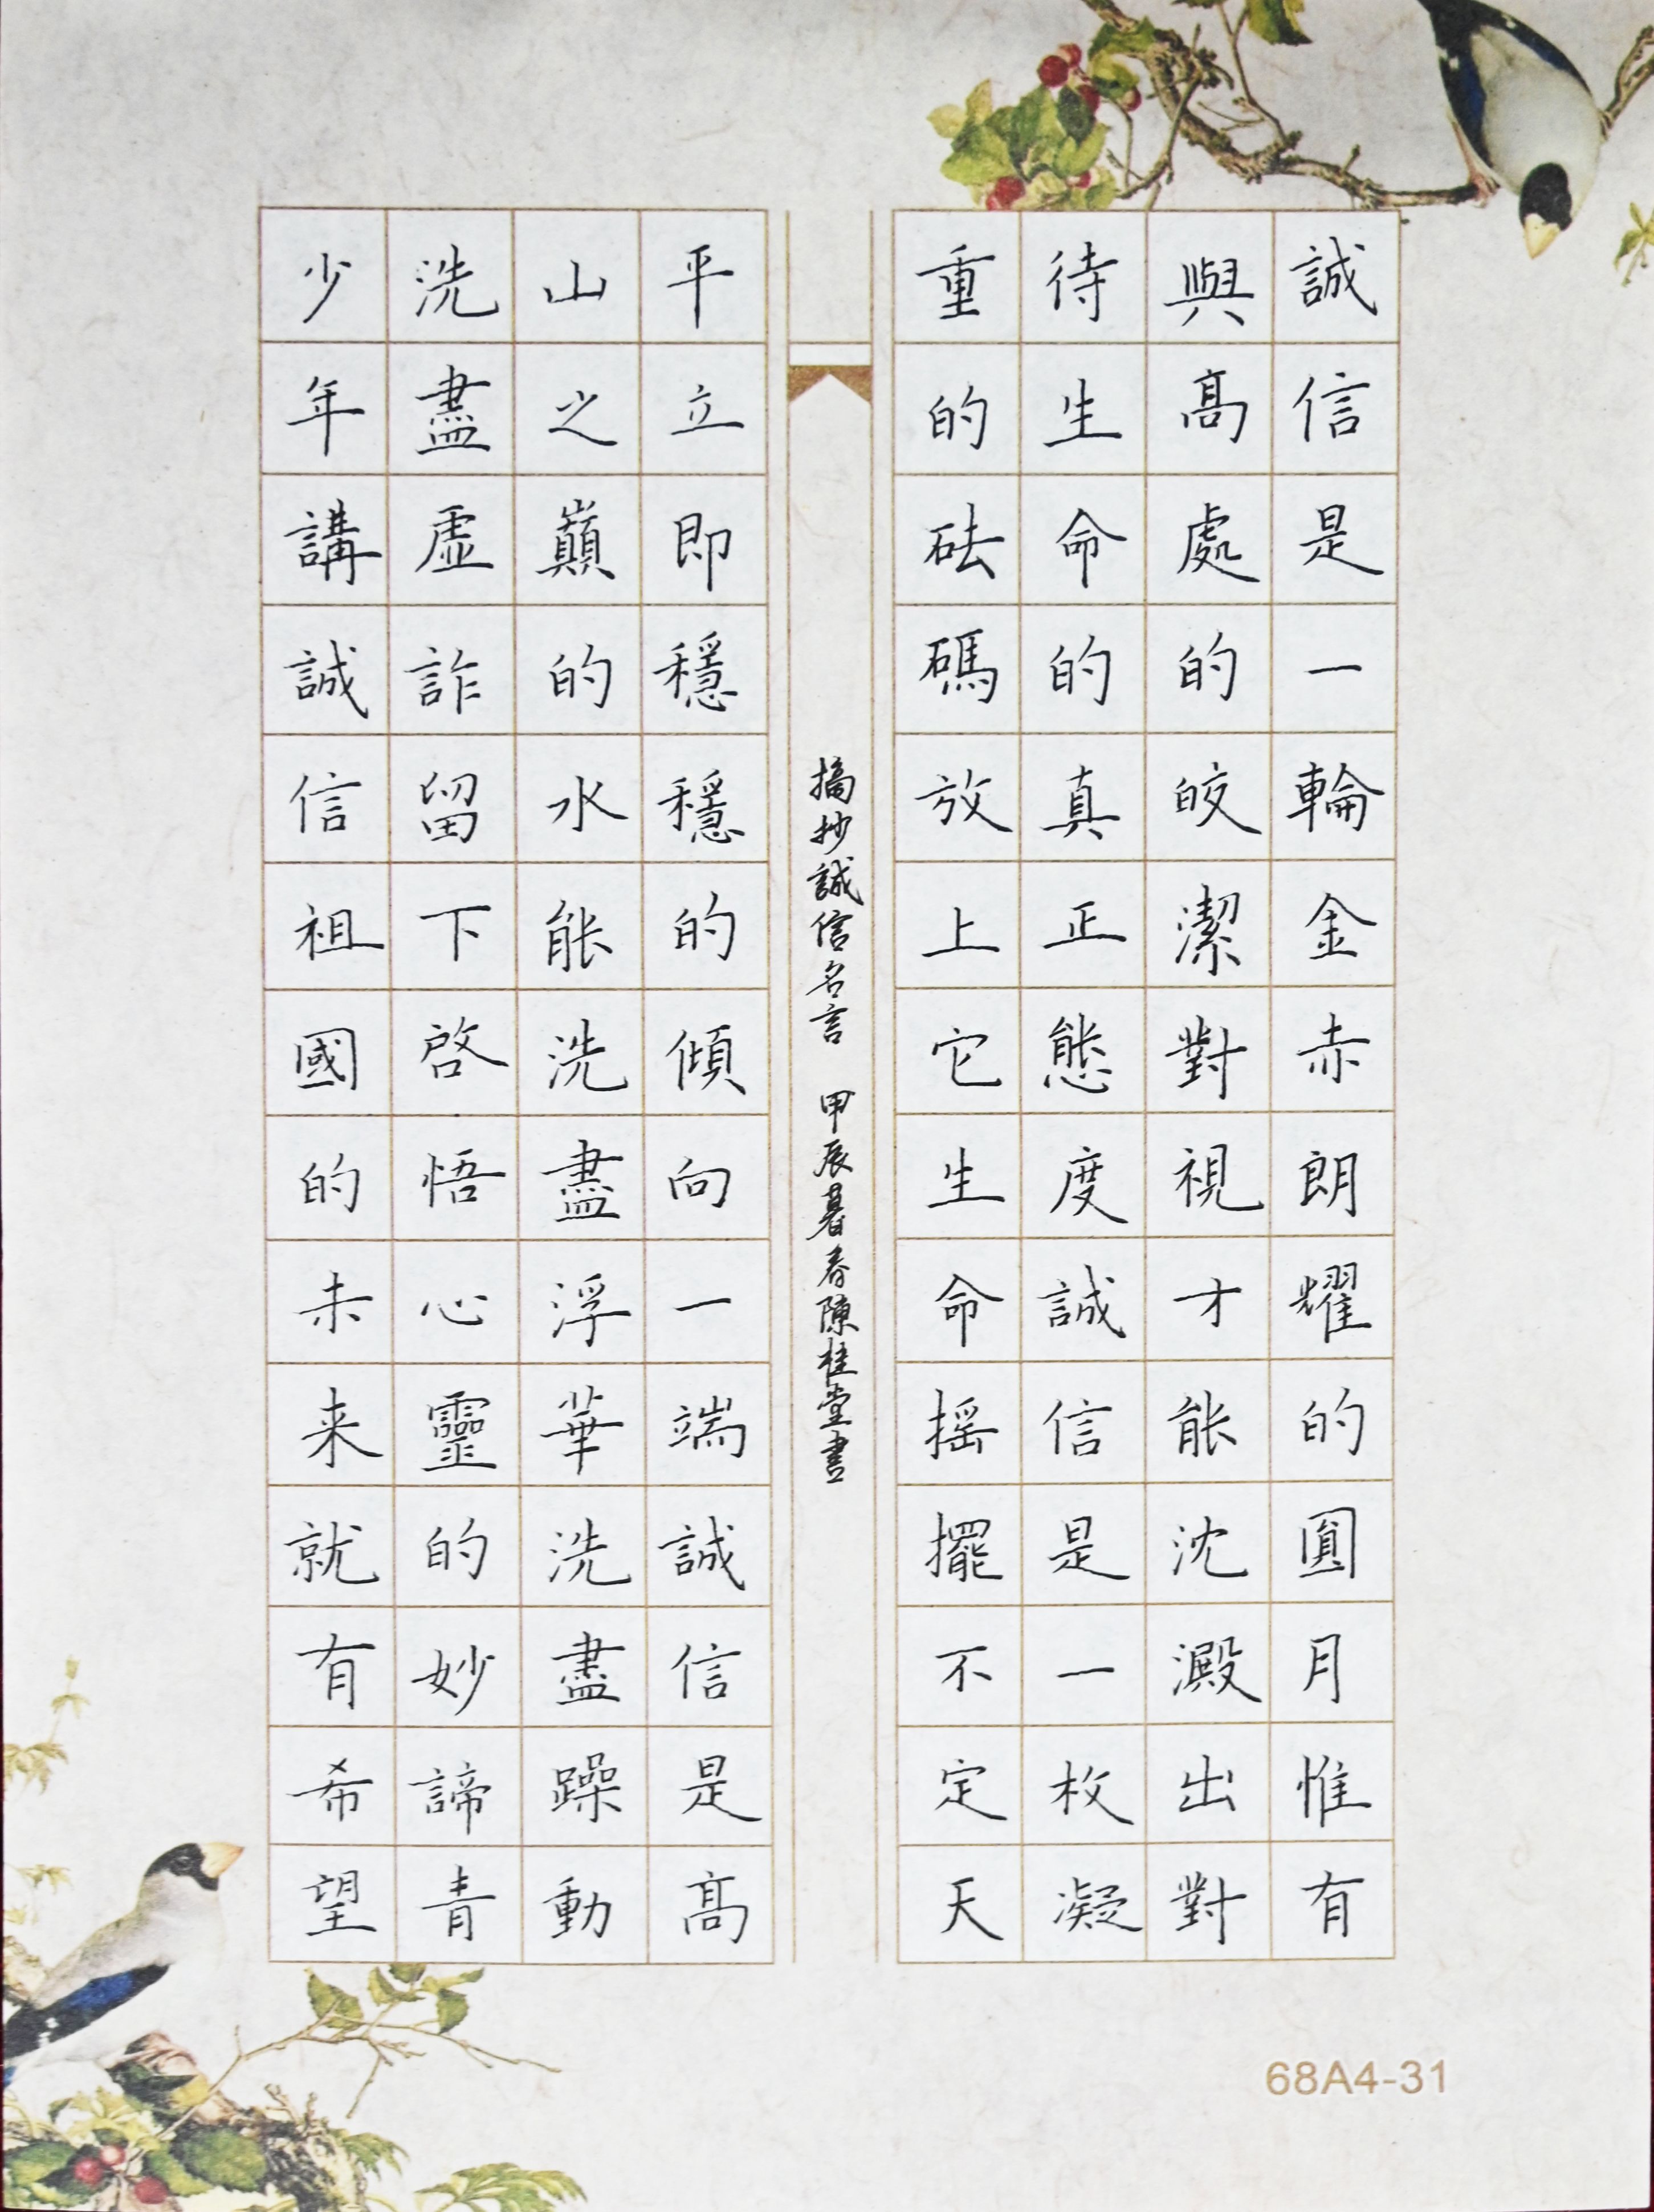 誠信是一輪金赤朗耀的圓月惟有
與高處的皎潔對視才能沈澱出對
待生命的真正態度誠信是一枚凝
重的砝碼放上它生命摇擺不定天
摘抄誠信名言 甲辰暮春陳桂堂書
平立即穩穩的傾向一端誠信是高
山之巔的水能洗盡浮華洗盡躁動
洗盡虛詐留下啓悟心靈的妙諦青
少年講誠信祖國的未来就有希望
68A4-31